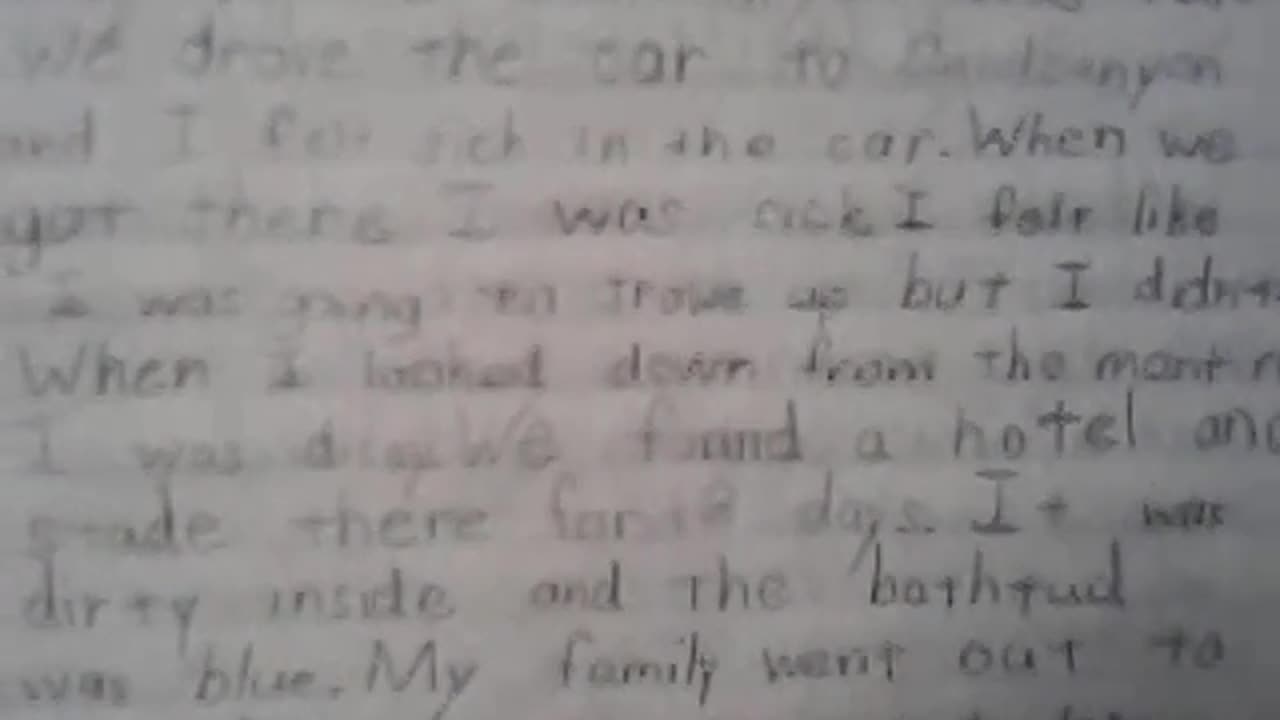 We drove the car to
and I felt sick in the car. When we
got there I was sick I felt like
I was going to trowe up but I didnt
When I looked down from the
I was We found a hotel and
stade there for days. It was
dirty inside and the bathtud
was blue. My family went out to